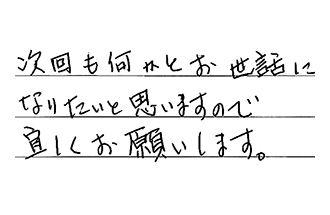 次回も何かとお世話に
なりたいと思いますので
宜しくお願いします。